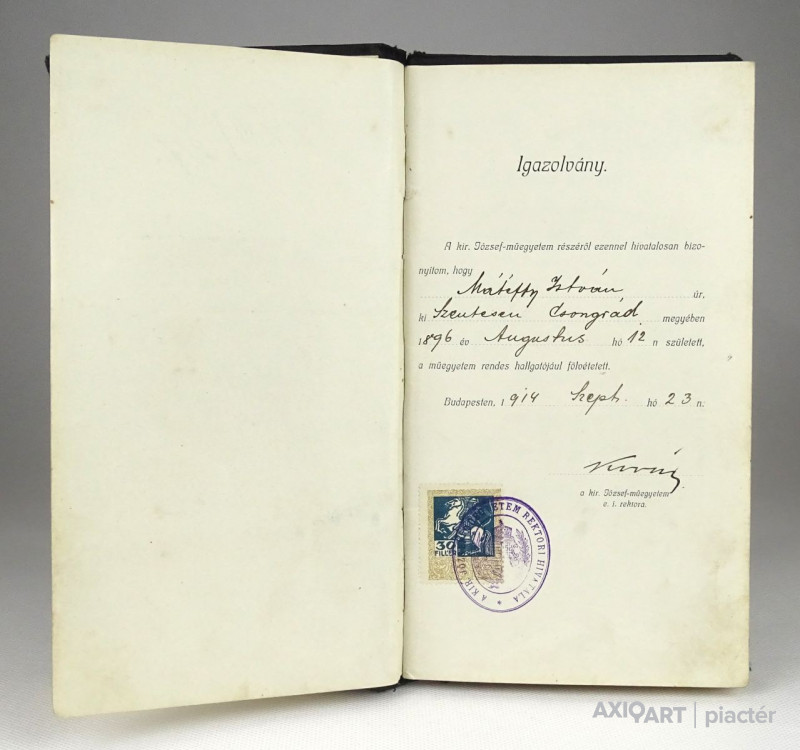 Igazolvány.
A kir. József-műegyetem részéről ezennel hivatalosan bizo-
nyítom, hogy
Mátéffy István úr,
ki Szentesen Csongrád megyében
1896 év Augustus hó 12 n született,
a műegyetem rendes hallgatójául fölvétetett.
Budapesten, 1914 Szept. hó 23 n.
a kir. József-műegyetem
e. i. rektora.
30
FILLÉR
A KIR. JÓZSEF MŰEGYETEM REKTORI HIVATALA
AXIOART | piactér